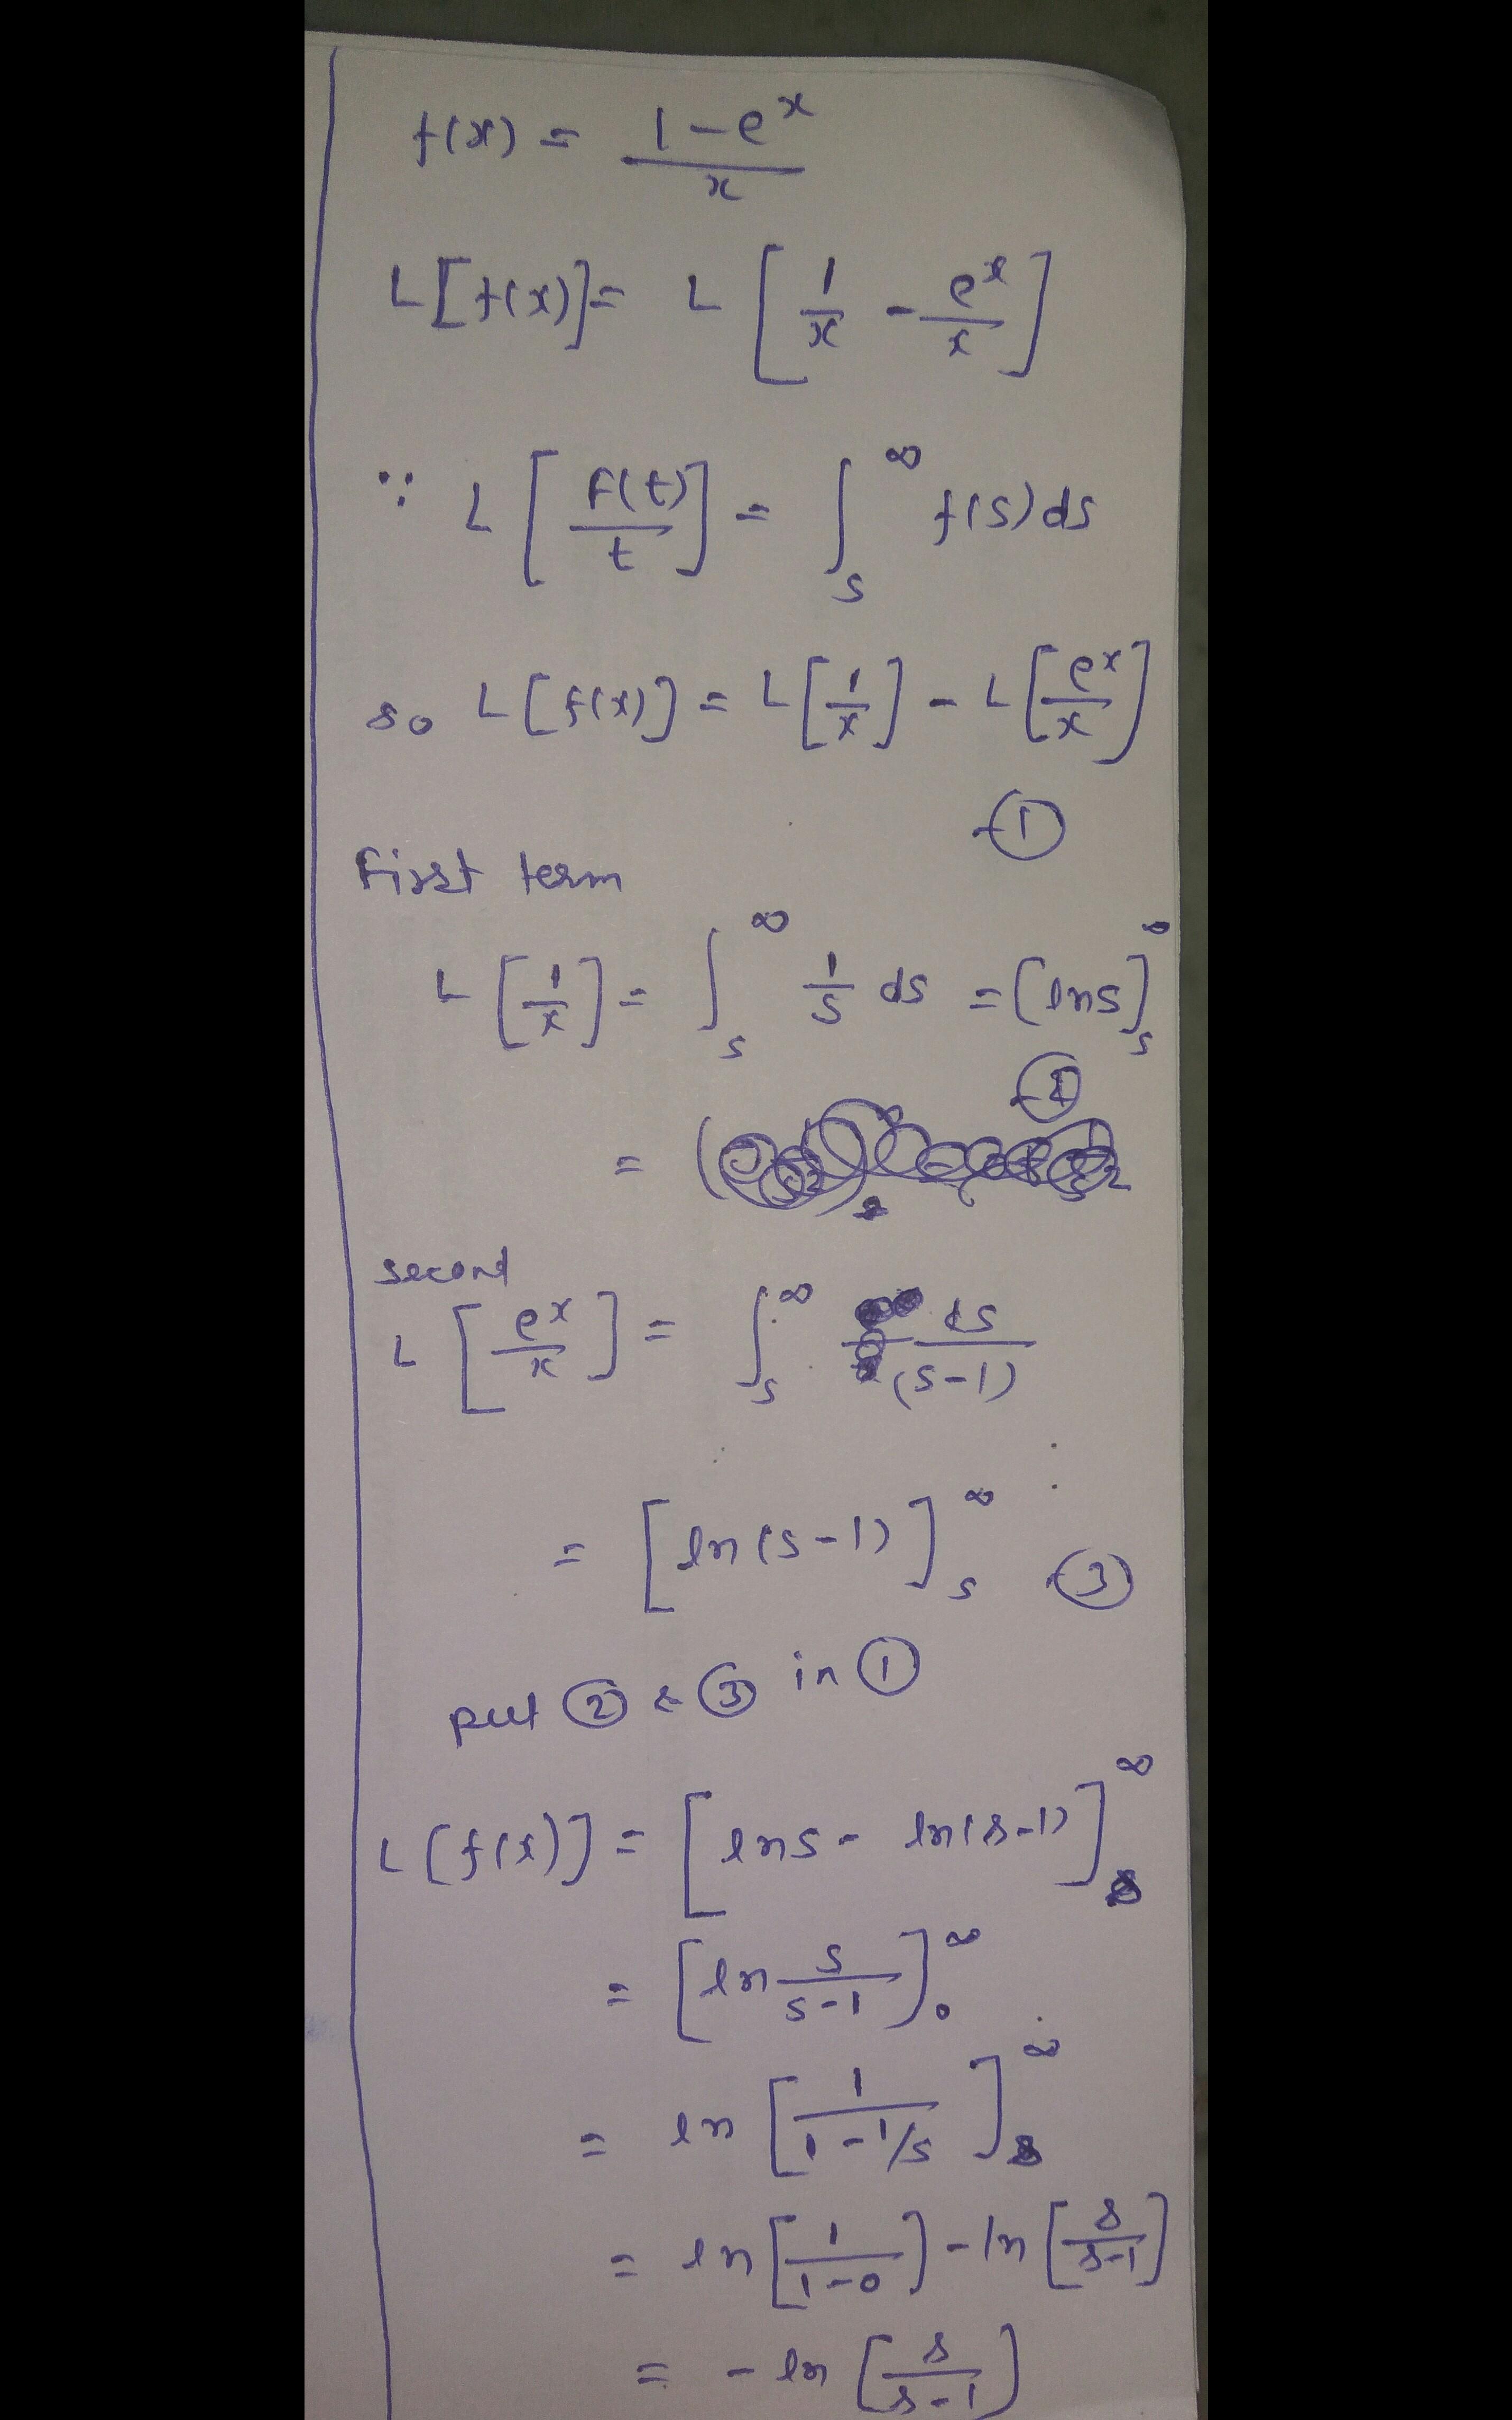 f(x) = (1 - e^x) / x
L[f(x)] = L [ 1/x - e^x/x ]
∵ L [ F(t)/t ] = ∫_s^∞ f(s) ds
so L[f(x)] = L[1/x] - L[e^x/x]
- ①
First term
L[1/x] = ∫_s^∞ 1/s ds = [ln s]_s^∞
- ②
=
second
L [ e^x/x ] = ∫_s^∞ ds/(s-1)
= [ ln(s-1) ]_s^∞ - ③
put ② & ③ in ①
L[f(x)] = [ ln s - ln(s-1) ]_s^∞
= [ ln s/(s-1) ]_0^∞
= ln [ 1/(1-1/s) ]_s^∞
= ln [ 1/(1-0) ] - ln [ s/(s-1) ]
= - ln [ s/(s-1) ]